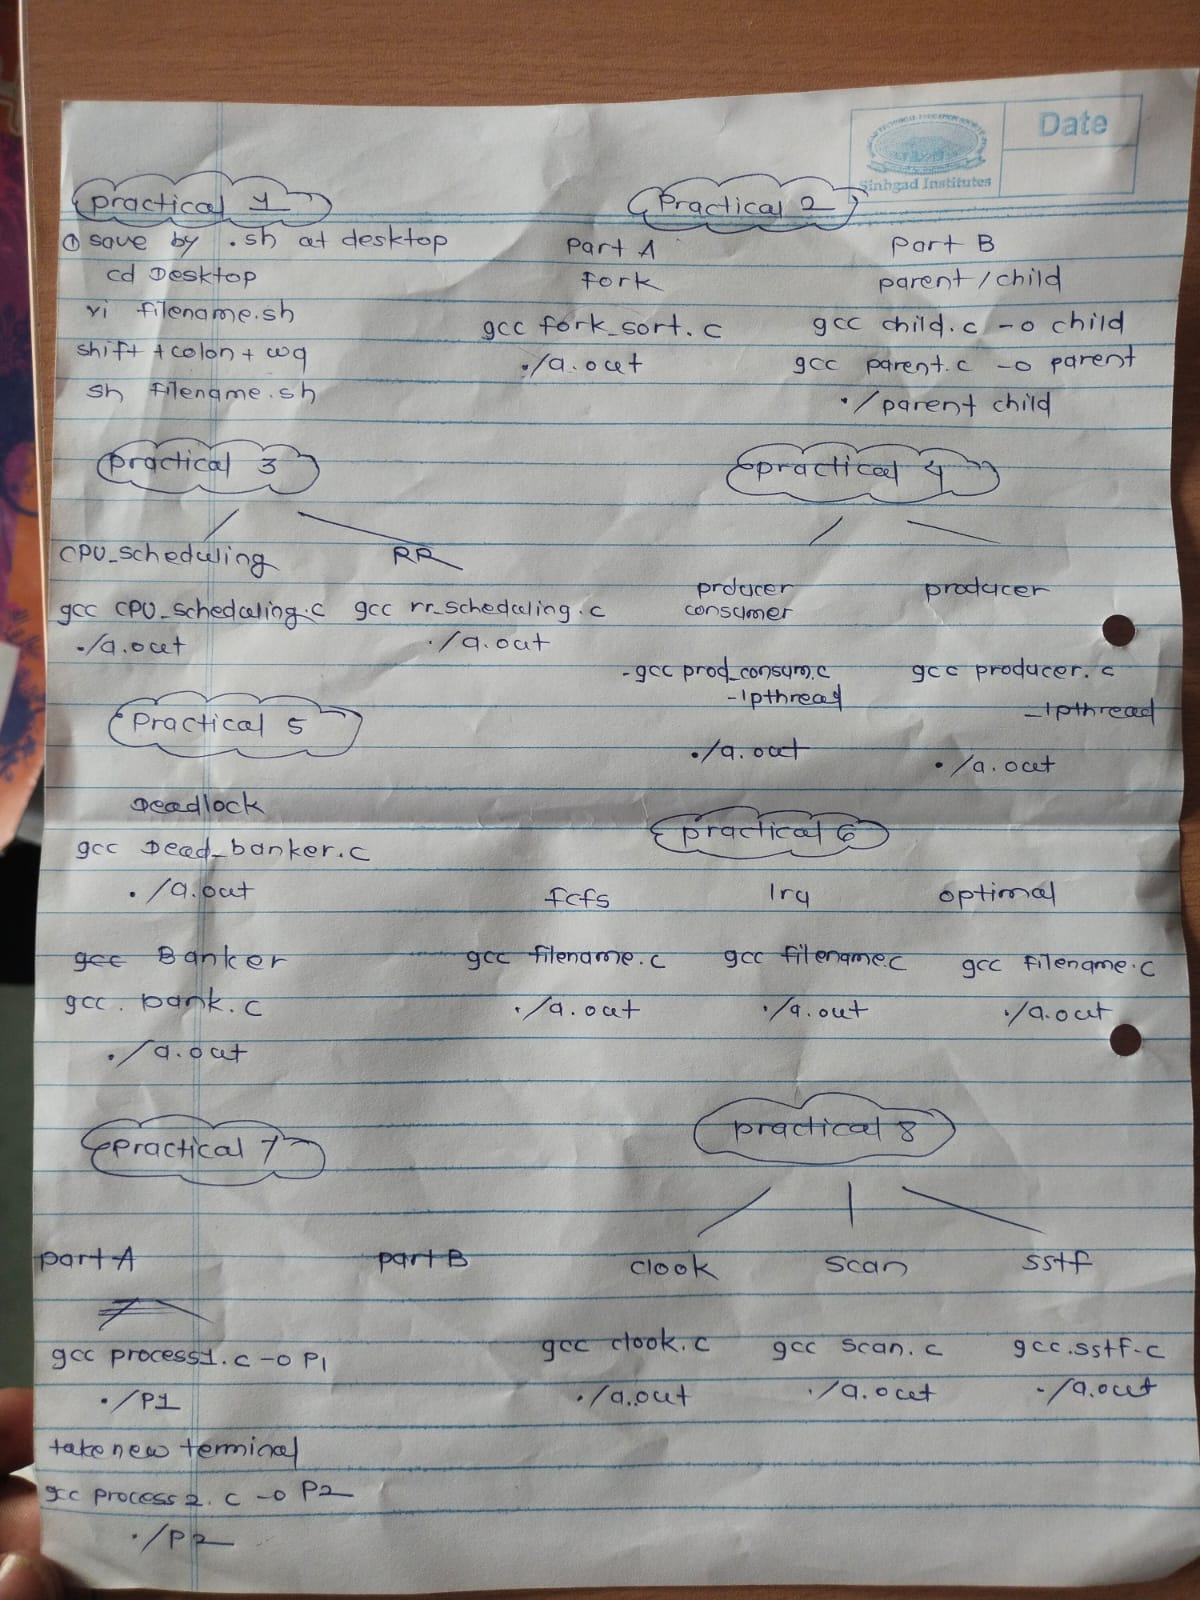 Sinhgad Institutes
Date
practical 1
① save by .sh at desktop
cd Desktop
vi filename.sh
shift + colon + wq
sh filename.sh
Practical 2
Part A
fork
gcc fork_sort.c
./a.out
part B
parent / child
gcc child.c -o child
gcc parent.c -o parent
./parent child
practical 3
CPU_scheduling
gcc CPU_scheduling.c
./a.out
RR
gcc rr_scheduling.c
./a.out
practical 4
prducer
consumer
-gcc prod_consum.c
-lpthread
./a.out
producer
gcc producer.c
-lpthread
./a.out
Practical 5
Deadlock
gcc Dead_banker.c
./a.out
gcc Banker
gcc. bank.c
./a.out
practical 6
fcfs
gcc filename.c
./a.out
lru
gcc filename.c
./a.out
optimal
gcc filename.c
./a.out
practical 7
part A
gcc process1.c -o P1
./P1
take new terminal
gcc process2.c -o P2
./P2
part B
practical 8
clook
gcc clook.c
./a.out
scan
gcc scan.c
./a.out
sstf
gcc.sstf.c
./a.out